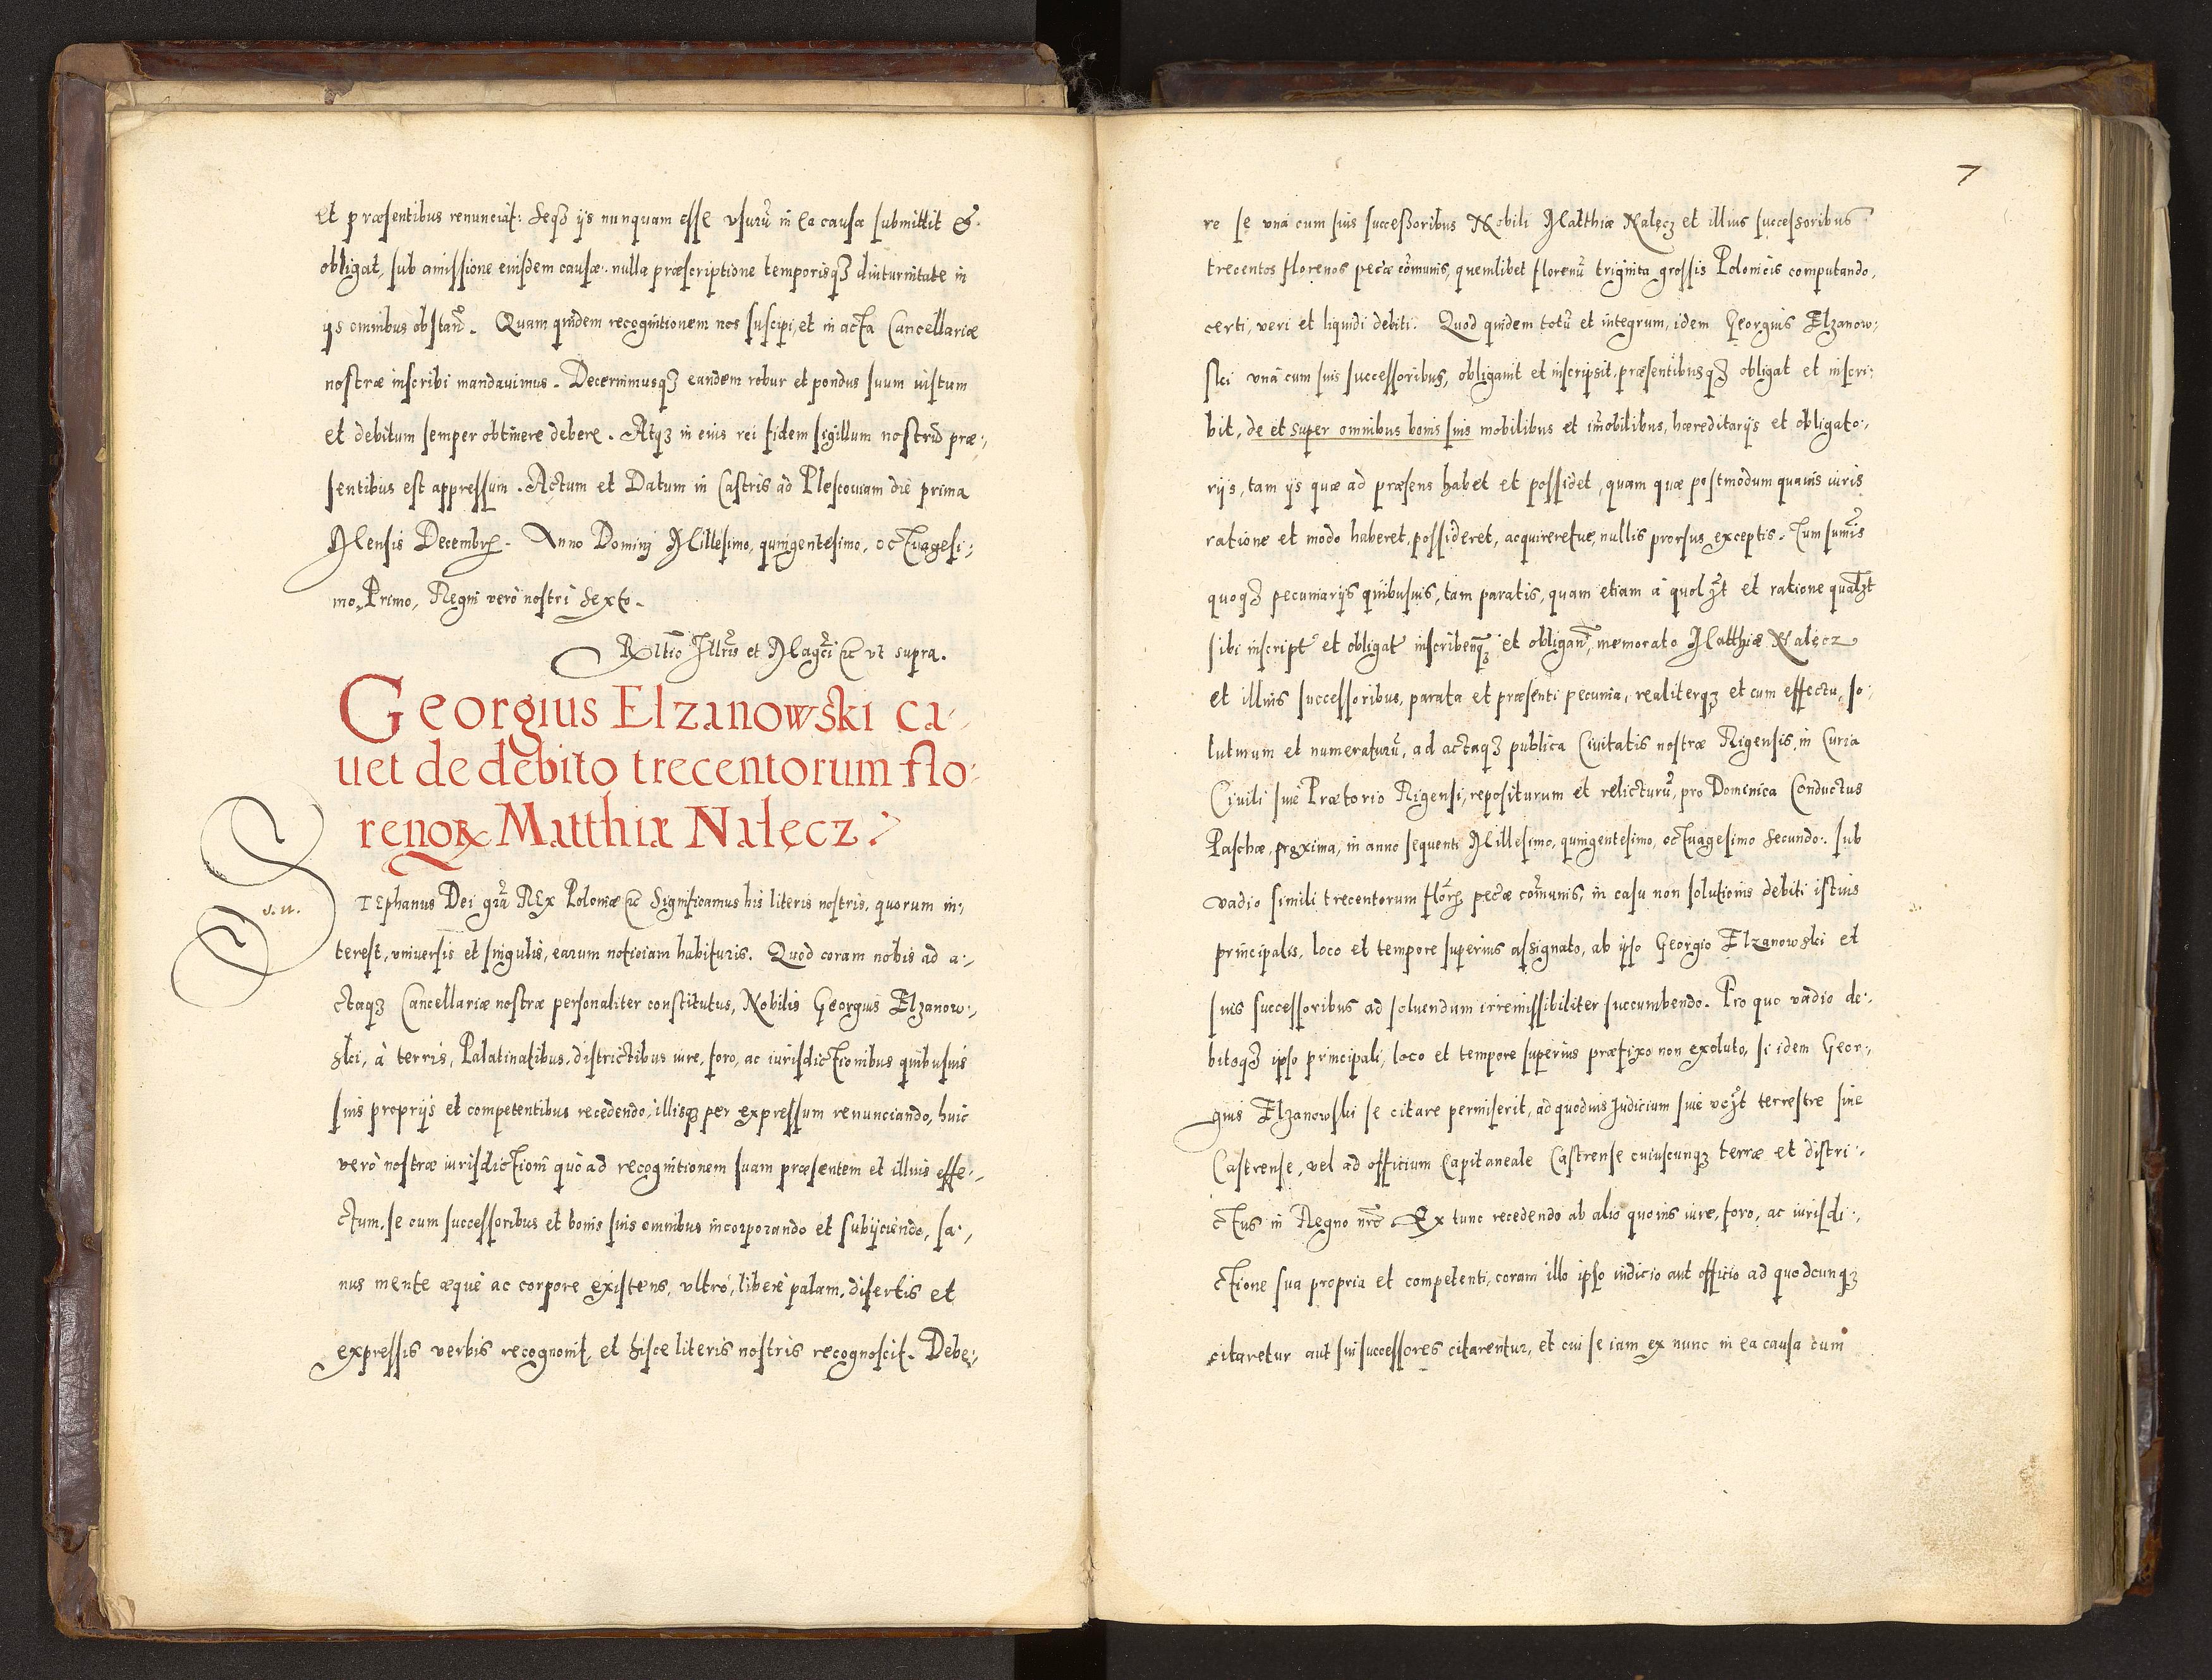 et præsentibus renunciat: Seqȝ ijs nunquam esse vsurũ in ea causa submittit &
obligat, sub amissione eiusdem causæ: nulla præscriptione temporisqȝ diuturnitate in
ijs omnibus obstañ. Quam quidem recognitionem nos suscipi, et in acta Cancellariæ
nostræ inscribi mandauimus. Decernimusqȝ eandem robur et pondus suum iustum
et debitum semper obtinere debere. Atqȝ in eius rei fidem sigillum nostrũ præ:,
sentibus est appressum. Actum et Datum in Castris ad Plescouiam die prima
Mensis Decembr. Anno Dominj Millesimo, quingentesimo, octuagesi:,
mo, Primo, Regni verò nostri Sexto.
Rltio Illris et Magci &c vt supra.
Georgius Elzanowski ca:
uet de debito trecentorum flo:
renoꝝ Matthiæ Nałęcz
STEphanus Dei grã REx Poloniæ &c Significamus his literis nostris, quorum in:,
S. n.
terest, vniuersis et singulis, earum noticiam habituris. Quod coram nobis ad a:,
ctaqȝ Cancellariæ nostræ personaliter constitutus, Nobilis Georgius Elzanow:,
ski, à terris, Palatinatibus, districtibus iure, foro, ac iurisdictionibus quibusuis
suis proprijs et competentibus recedendo, illisqȝ per expressum renunciando, huic
verò nostræ iurisdictioni quò ad recognitionem suam præsentem et illius effe:,
ctum, se cum successoribus et bonis suis omnibus incorporando et subijciendo, sa:,
nus mente æquè ac corpore existens, vltrò, liberè palam, disertis et
expressis verbis recognouit, et hisce literis nostris recognoscit. Debe:,
7
re se vnà cum suis successoribus Nobili Matthiæ Nałęcz et illius successoribus
trecentos florenos pecĩæ cõmunis, quemlibet florenũ triginta grossis Polonicis computando,
certi, veri et liquidi debiti. Quod quidem totũ et integrum, idem Georgius Elzanow:
ski vnà cum suis successoribus, obligauit et inscripsit, præsentibusqȝ obligat et inscri:
bit, de et super omnibus bonis suis mobilibus et im̃obilibus, hæreditarijs et obligato:,
rijs, tam ijs quæ ad præsens habet et possidet, quam quæ postmodum quauis iuris
ratione et modo haberet, possideret, acquireretue, nullis prorsus exceptis. Tum sum̃is
quoqȝ pecuniarijs quibusuis, tam paratis, quam etiam à quolȝt et ratione qualȝt
sibi inscript et obligat inscribenqȝ et obligan, memorato Matthiæ Nałęcz
et illius successoribus, parata et præsenti pecunia, realiterqȝ et cum effectu, so:
luturum et numeraturũ, ad actaqȝ publica Ciuitatis nostræ Rigensis, in Curia
Ciuili siue Prætorio Rigensi, repositurum et relicturũ, pro Dominica Conductus
Paschæ, proxima, in anno sequenti Millesimo, quingentesimo, octuagesimo Secundo: sub
vadio simili trecentorum florꝝ pecĩæ com̃unis, in casu non solutionis debiti istius
principalis, loco et tempore superius assignato, ab ipso Georgio Elzanowski et
suis successoribus ad soluendum irremissibiliter succumbendo. Pro quo vadio de:,
bitoqȝ ipso principali, loco et tempore superius præfixo non exoluto, si idem Geor:,
gius Elzanowski se citare permiserit, ad quoduis Iudicium siue veȝt terrestre siue
Castrense, vel ad officium Capitaneale Castrense cuiuscunqȝ terræ et distri:,
ctus in Regno nrõ. Ex tunc recedendo ab alio quouis iure, foro, ac iurisdi:,
ctione sua propria et competenti, coram illo ipso iudicio aut officio ad quodcunqȝ
citaretur aut sui successores citarentur, et cui se iam ex nunc in ea causa cum